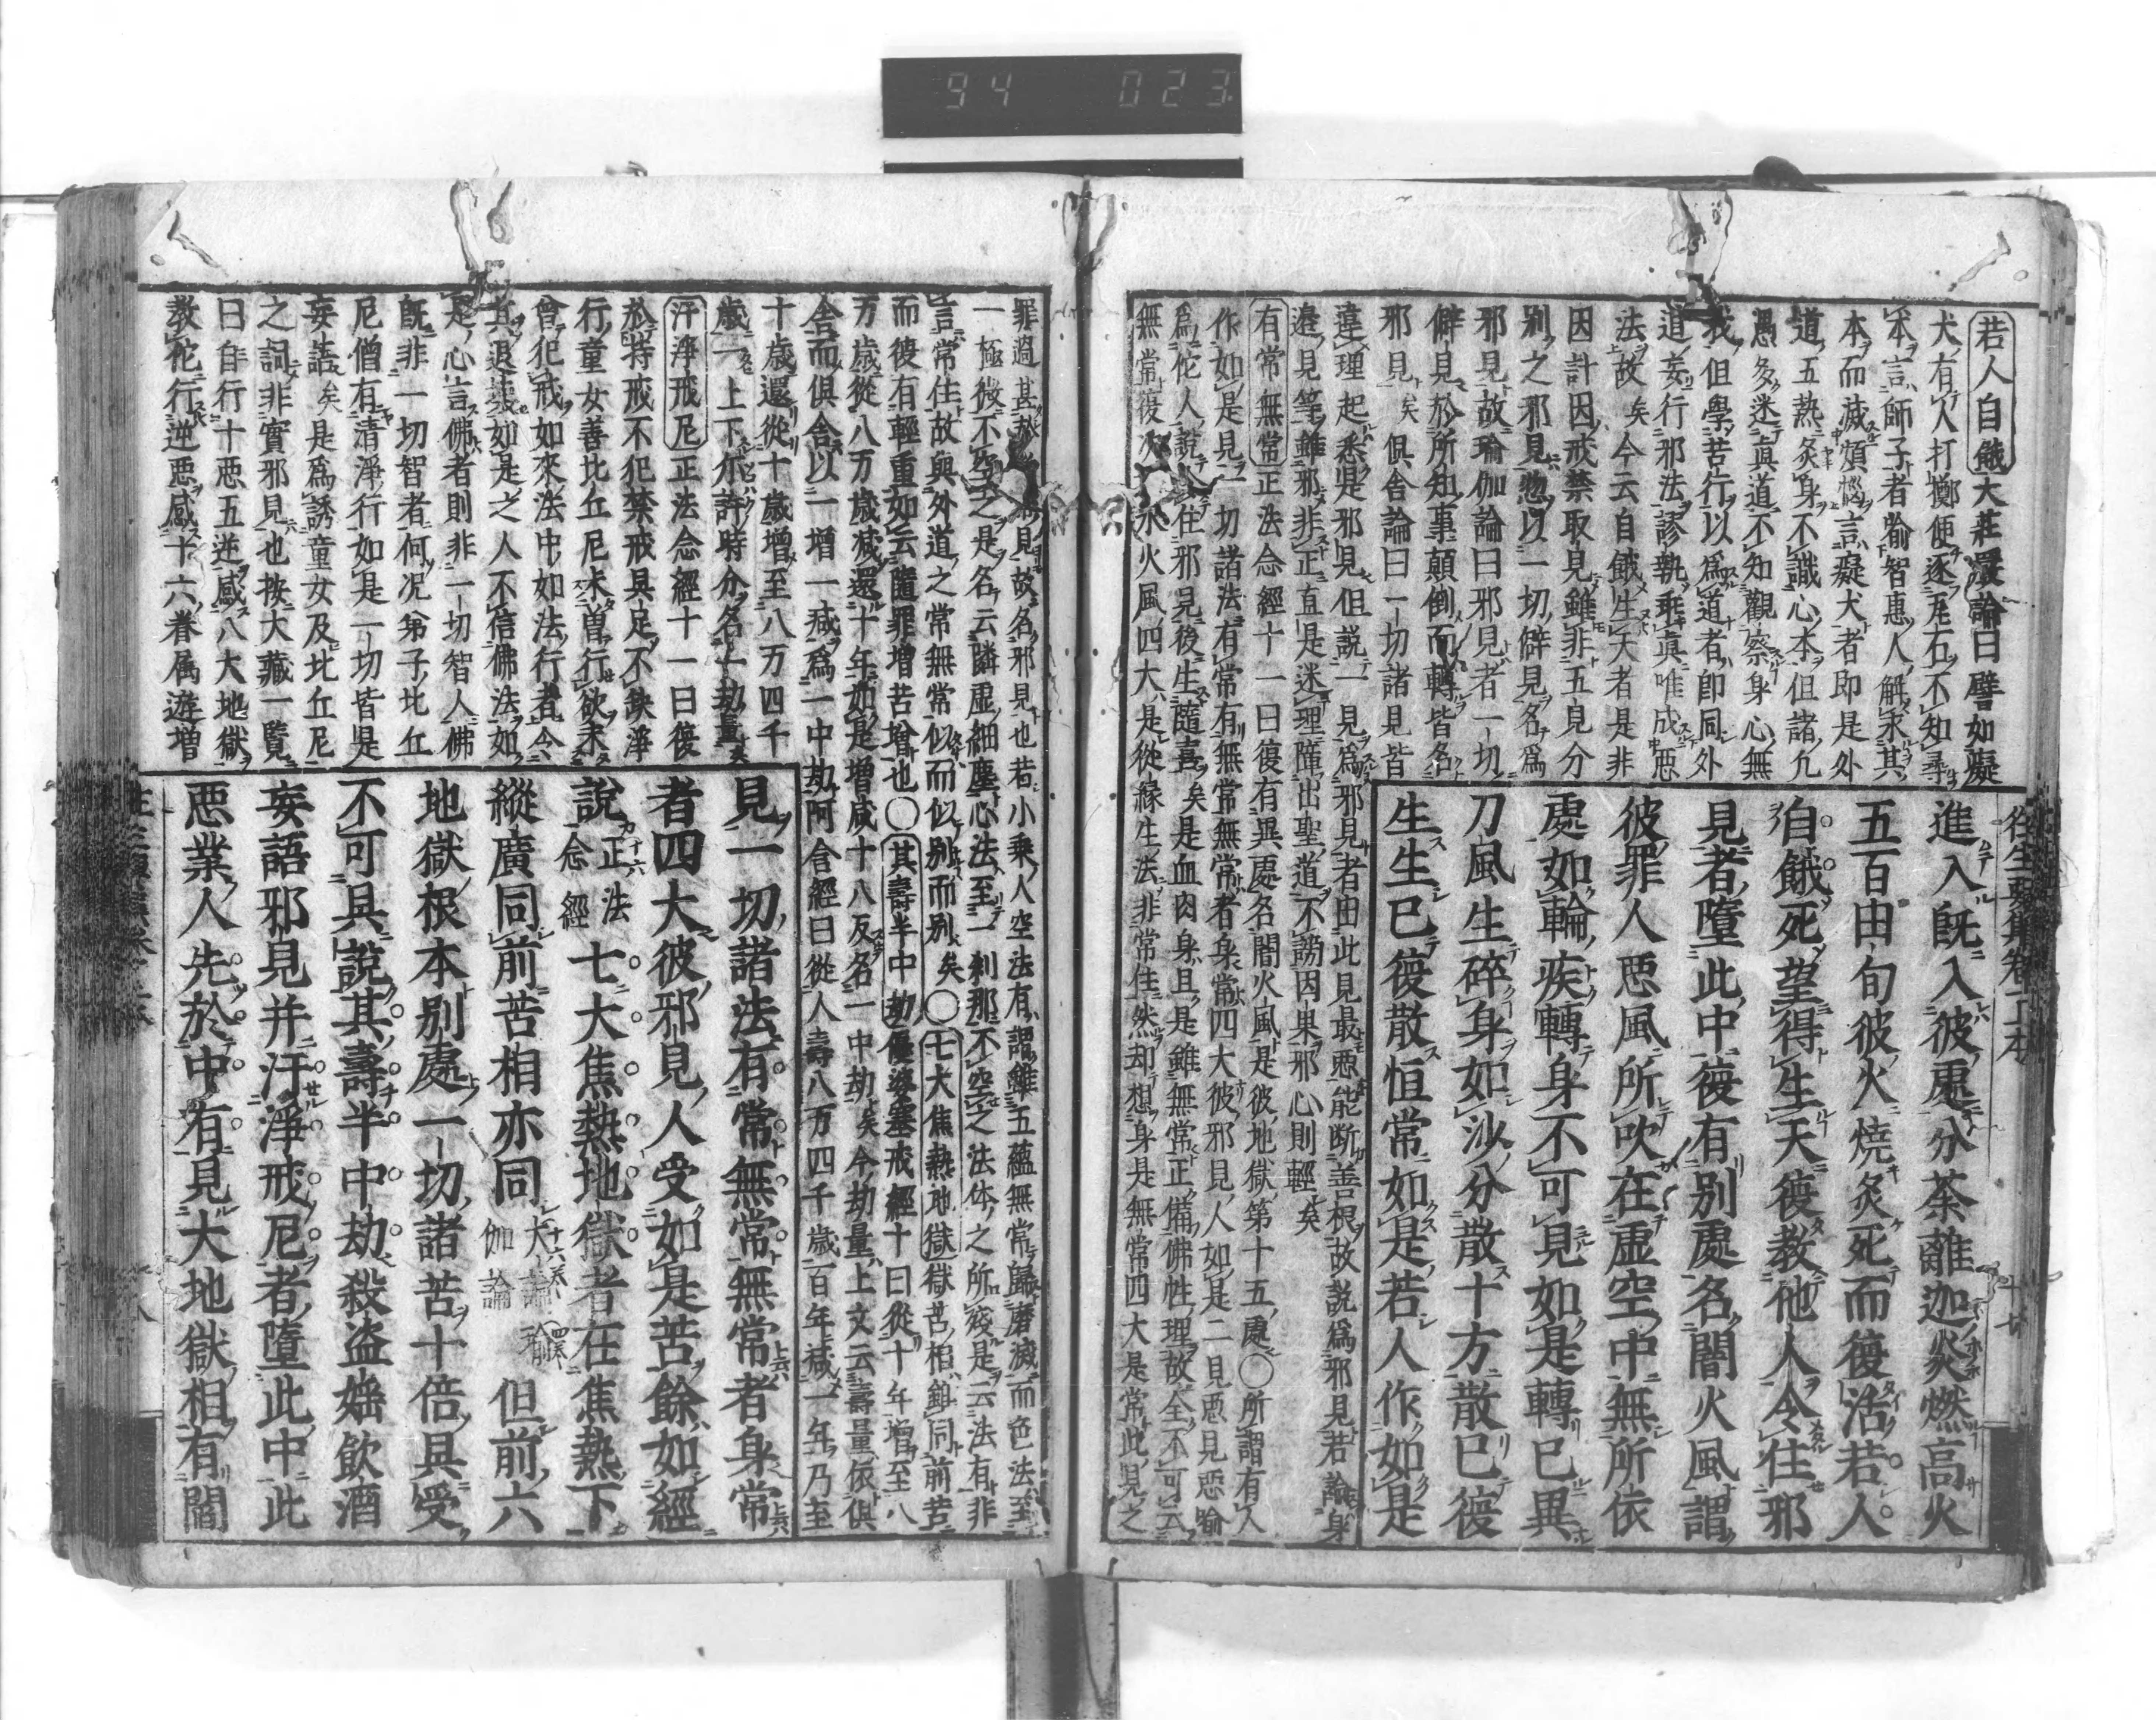 94 023
往生要集卷上本
進入既入彼處分荼離迦炎燃高火
五百由旬彼火燒炙死而復活若人
自餓死望得生天復教他人令住邪
見者墮此中復有別處名闇火風謂
彼罪人惡風所吹在虛空中無所依
處如輪疾轉身不可見如是轉已異
刀風生碎身如沙分散十方散已復
生生已復散恒常如是若人作如是
若人自餓大莊嚴論曰譬如癡
犬有人打擲便逐瓦石不知尋
本言師子者喻智惠人解求其
本而滅煩惱言癡犬者即是外
道五熱炙身不識心本但諸凡
愚多迷真道不知觀察身心無
我但學苦行以為道者即同外
道妄行邪法謬執乖真唯成惡
法故矣今云自餓生天者是非
因計因戒禁取見雖非五見分
別之邪見惣以一切僻見名為
邪見故瑜伽論曰邪見者一切
僻見於所知事顛倒而轉皆名
邪見矣俱舍論曰一切諸見皆
違理起悉是邪見但說一見為邪見者由此見最惡能断善根故説為邪見若論身
邊見等雖邪非正直是迷理障出聖道不謗因果邪心則輕矣
有常無常正法念經十一曰復有異處名闇火風是彼地獄第十五處〇所謂有人
作如是見一切諸法有常有無常無常者身常四大彼邪見人如是二見惡見惡喻
為佗人說令住邪見後生隨喜矣是血肉身且是雖無常正備佛性理故全不可云
無常復次 水火風四大是從緣生法非常住然却想身是無常四大是常此見之
罪過甚 見故名邪見也若小乘人空法有謂雖五蘊無常歸磨滅而色法至
一極微不空之是名云隣虛細塵心法至一刹那不空之法体之所殘是云法有非
言常住故與外道之常無常似而似別而別矣〇七大焦熱地獄獄苦相鉾同前苦
而復有輕重如云隨罪增苦增也〇其壽半中劫優婆塞戒經十曰從十年增至八
万歲從八万歲減還十年如是增咸十八反名一中劫矣今劫量上文云壽量依俱
舍而俱舍以一增一減為一中劫阿含經曰從人壽八万四千歲百年減一年乃至
十歲還從十歲增至八万四千
歲一上下尓許時分名一劫量
汗淨戒尼正法念經十一曰復
於持戒不犯禁戒具足不缺淨
行童女善比丘尼未曽行欲未
曽犯戒如來法中如法行者今
其退 如是之人不信佛法如
是心言佛者則非一切智人佛
既非一切智者何況弟子比丘
尼僧有清淨行如是一切皆是
妄語矣是為誘童女及比丘尼
之詞非實邪見也按大藏一覽
曰自行十惡五逆感八大地獄
教佗行逆惡感十六眷属遊增
見一切諸法有常無常無常者身常
者四大彼邪見人受如是苦餘如經
說 正法念經 七大焦熱地獄者在焦熱下
縱廣同前苦相亦同 大論瑜伽論 但前六
地獄根本別處一切諸苦十倍具受
不可具說其壽半中劫殺盜婬飲酒
妄語邪見并汗淨戒尼者墮此中此
惡業人先於中有見大地獄相有閻